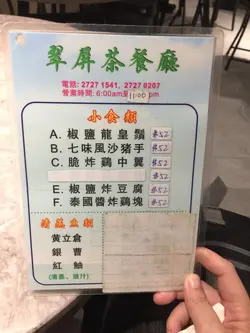 翠屏茶餐廳
電話: 2727 1541, 2727 0207
營業時間: 6:00am至11:00pm
小食類
A. 椒鹽龍皇鬚 $52
B. 七味風沙豬手 $52
C. 脆炸鷄中翼 $52
E. 椒鹽炸豆腐 $52
F. 泰國醬炸鷄塊 $52
清蒸魚類
黃立倉
銀曹
紅鮋
(清蒸、頭汁)